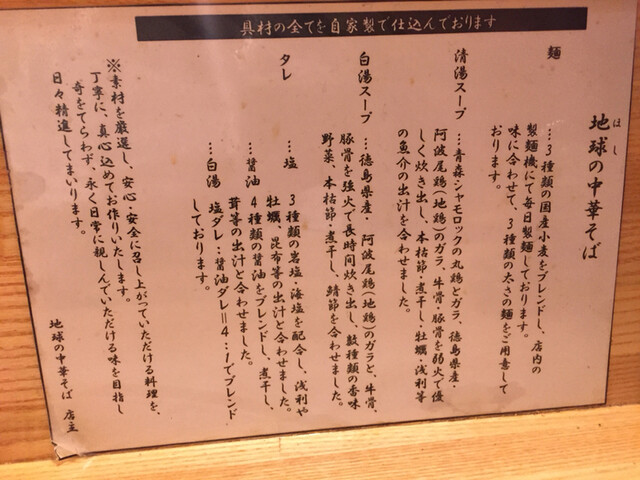 具材の全てを自家製で仕込んでおります
地球の中華そば
ほし
麺
…3種類の国産小麦をブレンドし、店内の
製麺機にて毎日製麺しております。
味に合わせて、3種類の太さの麺をご用意して
おります。
清湯スープ
…青森シャモロックの丸鶏とガラ、徳島県産・
阿波尾鶏(地鶏)のガラ、牛骨・豚骨を弱火で優
しく炊き出し、本枯節・煮干し・牡蠣・浅利等
の魚介の出汁を合わせました。
白湯スープ
…徳島県産・阿波尾鶏(地鶏)のガラと、牛骨、
豚骨を強火で長時間炊き出し、数種類の香味
野菜、本枯節・煮干し、鯖節を合わせました。
タレ
…塩
3種類の岩塩・海塩を配合し、浅利や
牡蠣、昆布等の出汁と合わせました。
…醤油
4種類の醤油をブレンドし、煮干し、
茸等の出汁と合わせました。
…白湯
塩ダレ:醤油ダレ=4:1でブレンド
しております。
※素材を厳選し、安心・安全に召し上がっていただける料理を、
丁寧に、真心込めてお作りいたします。
奇をてらわず、永く日常に親しんでいただける味を目指し
日々精進してまいります。
地球の中華そば 店主